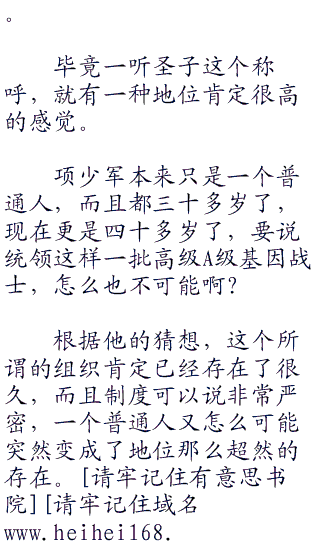 。
毕竟一听圣子这个称
呼，就有一种地位肯定很高
的感觉。
项少军本来只是一个普
通人，而且都三十多岁了，
现在更是四十多岁了，要说
统领这样一批高级A级基因战
士，怎么也不可能啊？
根据他的猜想，这个所
谓的组织肯定已经存在了很
久，而且制度可以说非常严
密，一个普通人又怎么可能
突然变成了地位那么超然的
存在。[请牢记住有意思书
院][请牢记住域名
www.heihei168.